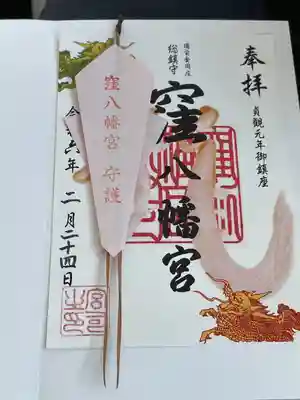 奉拝
貞観元年御鎮座
窪八幡宮
総鎮守
窪八幡宮 守護
令和六年 二月二十四日